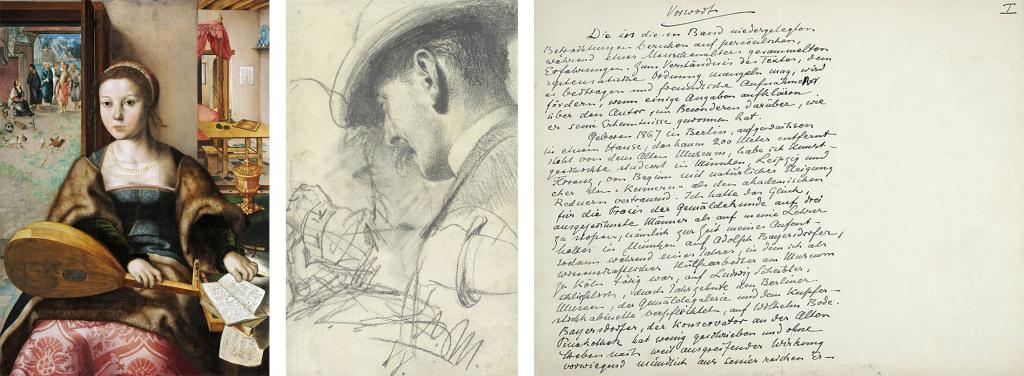 Vorwort
I
Die in diesem Band niedergelegten
Betrachtungen beruhen auf persönlichen,
während eines Menschenalters gesammelten
Erfahrungen. Zum Verständnis des Textes, dem
systematische Ordnung mangeln mag, wird
es beitragen und freundliche Aufnahme
fördern, wenn einige Angaben aufklären
über den Autor, im Besonderen darüber, wie
er seine Erkenntnisse gewonnen hat.
Geboren 1867 in Berlin, aufgewachsen
in einem Hause, das kaum 200 Meter entfernt
steht von dem Alten Museum, habe ich Kunst-
geschichte studiert in München, Leipzig und
Florenz, von Beginn mit natürlicher Neigung
eher den Kennern als den akademischen
Rednern vertrauend. Ich hatte das Glück,
für die Praxis der Gemäldekunde auf drei
ausgezeichnete Männer als auf meine Lehrer
zu stossen, nämlich zur Zeit meines Aufent-
haltes in München auf Adolph Bayersdorfer,
sodann während eines Jahres, in dem ich als
wissenschaftlicher Hülfsarbeiter am Museum
zu Köln tätig war, auf Ludwig Scheibler,
schließlich, durch Jahrzehnte den Berliner
Museen, der Gemäldegalerie und dem Kupfer-
stichkabinette verpflichtet, auf Wilhelm Bode.
Bayersdorfer, der Konservator an der Alten
Pinakothek hat wenig geschrieben und ohne
Streben nach weit ausgreifender Wirkung
vorwiegend mündlich aus seiner reichen Er-